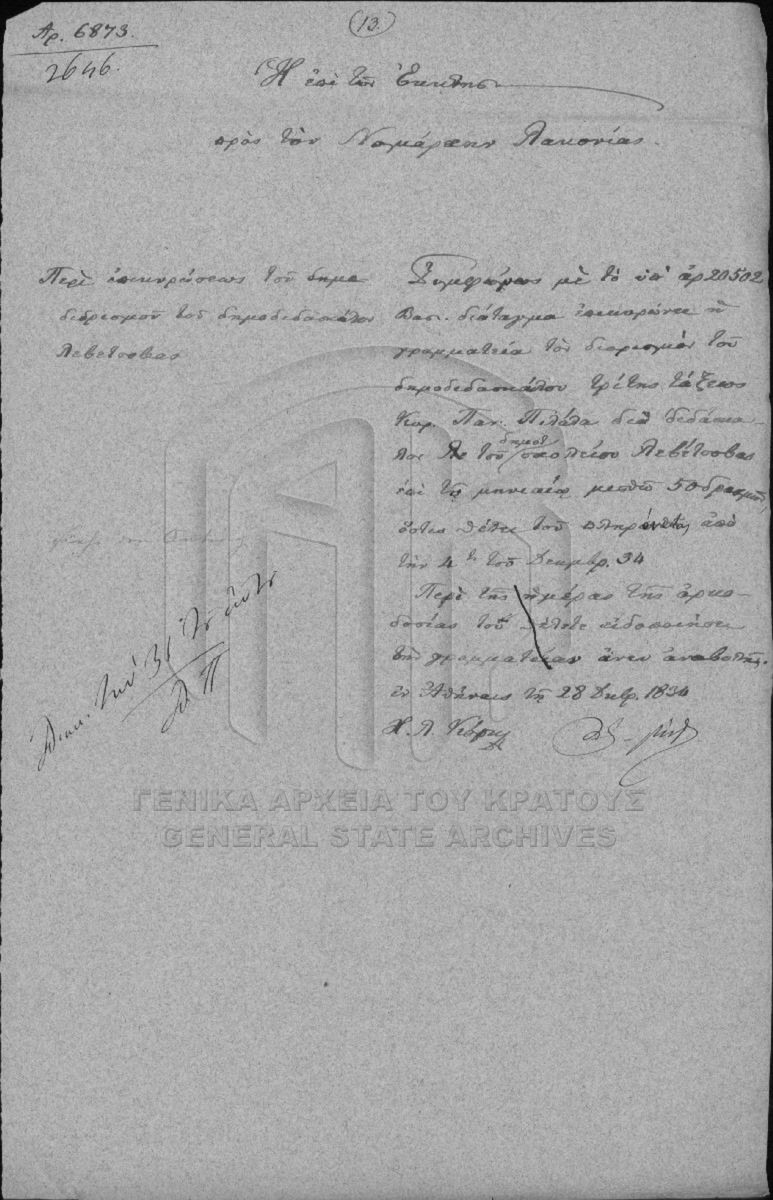 Αρ. 6873.
2646.
13
Ἡ ἐπὶ τῶν Ἐκκλησ
πρὸς τὸν Νομάρχην Λακονίας.
Περὶ ἐπικυρώσεως τοῦ
διορισμοῦ τοῦ δημοδιδασκάλου
Λεβέτσοβας
Συμφώνως μὲ τὸ ὑπ' ἀρ 20502
Βασ. διάταγμα ἐπικυρώνει ἡ
γραμματεία τὸν διορισμὸν τοῦ
δημοδιδασκάλου τρίτης τάξεως
Παν. διὰ διδάσκα-
λος τοῦ δημοτ σχολείου Λεβέτσοβας
ἐπὶ τῷ μηνιαίῳ μισθῷ 50 δραχμῶν,
ὅστις θέλει τοῦ πληρόνεται ἀπὸ
τὴν 4 τοῦ Δεκμβρ. 34
Περὶ τῆς ἡμέρας τῆς ὁρκο-
δοσίας τοῦ θέλετε εἰδοποιήσει
τὴν γραμματείαν ἄνευ ἀναβολῆς.
ἐν Ἀθήναις τῇ 28 Δκβρ. 1834
τὴν 31
ΓΕΝΙΚΑ ΑΡΧΕΙΑ ΤΟΥ ΚΡΑΤΟΥΣ
GENERAL STATE ARCHIVES